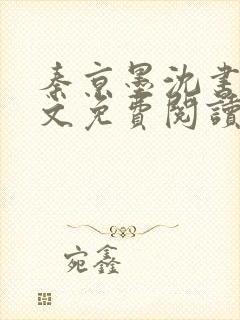 秦京墨沈書
文免費閱讀
宛鑫